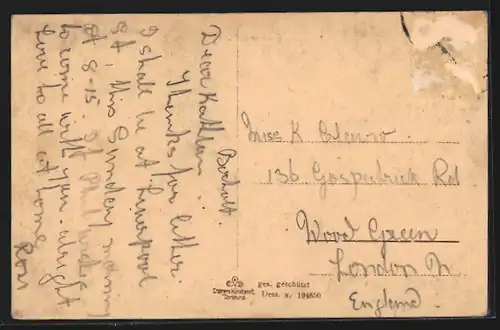 Bocholt.
Dear Kathleen
Thanks for letter.
I shall be at Liverpool
St, this Sunday
at 8-15. If Phil wants
to come with you. alright
Love to all at home
Ron
Miss K
136 Gospatrick Rd
Wood Green
London N
England.
ges. geschützt
Dess. Nr. 194650